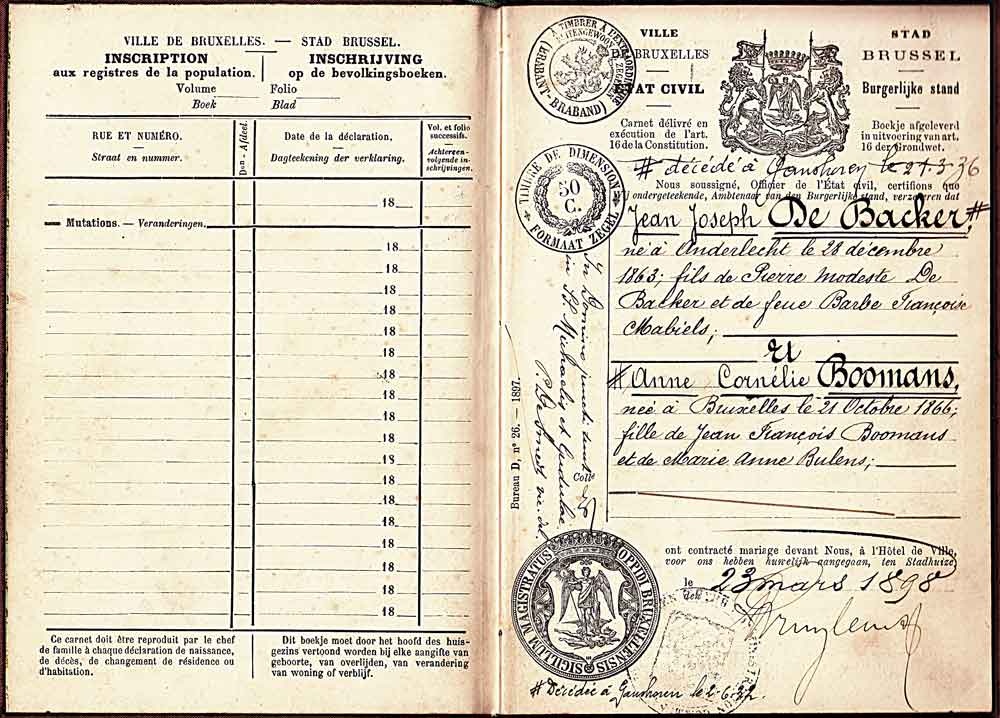 VILLE DE BRUXELLES. — STAD BRUSSEL.
INSCRIPTION
aux registres de la population.
Volume
Boek
INSCHRIJVING
op de bevolkingsboeken.
Folio
Blad
RUE ET NUMÉRO.
Straat en nummer.
Don - Afdeel.
Date de la déclaration.
Dagteekening der verklaring.
Vol. et folio
successifs.
Achtereen-
volgende in-
schrijvingen.
18
Mutations. — Veranderingen.
18
18
18
18
18
18
18
18
18
18
18
18
18
18
18
18
18
18
Ce carnet doit être reproduit par le chef
de famille à chaque déclaration de naissance,
de décès, de changement de résidence ou
d'habitation.
Dit boekje moet door het hoofd des huis-
gezins vertoond worden bij elke aangifte van
geboorte, van overlijden, van verandering
van woning of verblijf.
Bureau D, n° 26. — 1897.
A TIMBRER À L'EXTRAORDINAIRE
(BRABANT - BRABAND)
VILLE
BRUXELLES
ÉTAT CIVIL
Carnet délivré en
exécution de l'art.
16 de la Constitution.
STAD
BRUSSEL
Burgerlijke stand
Boekje afgeleverd
in uitvoering van art.
16 der Grondwet.
# décédé à Ganshoren le 27-3-36
TIMBRE DE DIMENSION
50
C.
FORMAAT ZEGEL
Nous soussigné, Officier de l'État civil, certifions que
ondergeteekende, Ambtenaar van den Burgerlijke stand, verzekeren dat
Jean Joseph De Backer, #
né à Anderlecht le 28 décembre
1863; fils de Pierre Modeste De
Backer et de feue Barbe Françoise
Mabiels;
Et
# Anne Cornélie Boomans,
née à Bruxelles le 21 Octobre 1866;
fille de Jean François Boomans
et de Marie Anne Bulens;
In Domino juncti sunt
in SS. Michaelis et Gudulae
Coll.
ont contracté mariage devant Nous, à l'Hôtel de Ville,
voor ons hebben huwelijk aangegaan, ten Stadhuize,
le
den
23 mars 1898
SIGILLUM MAGISTRATUS OPPIDI BRUXELLENSIS
# Décédée à Ganshoren le 2-6-32.